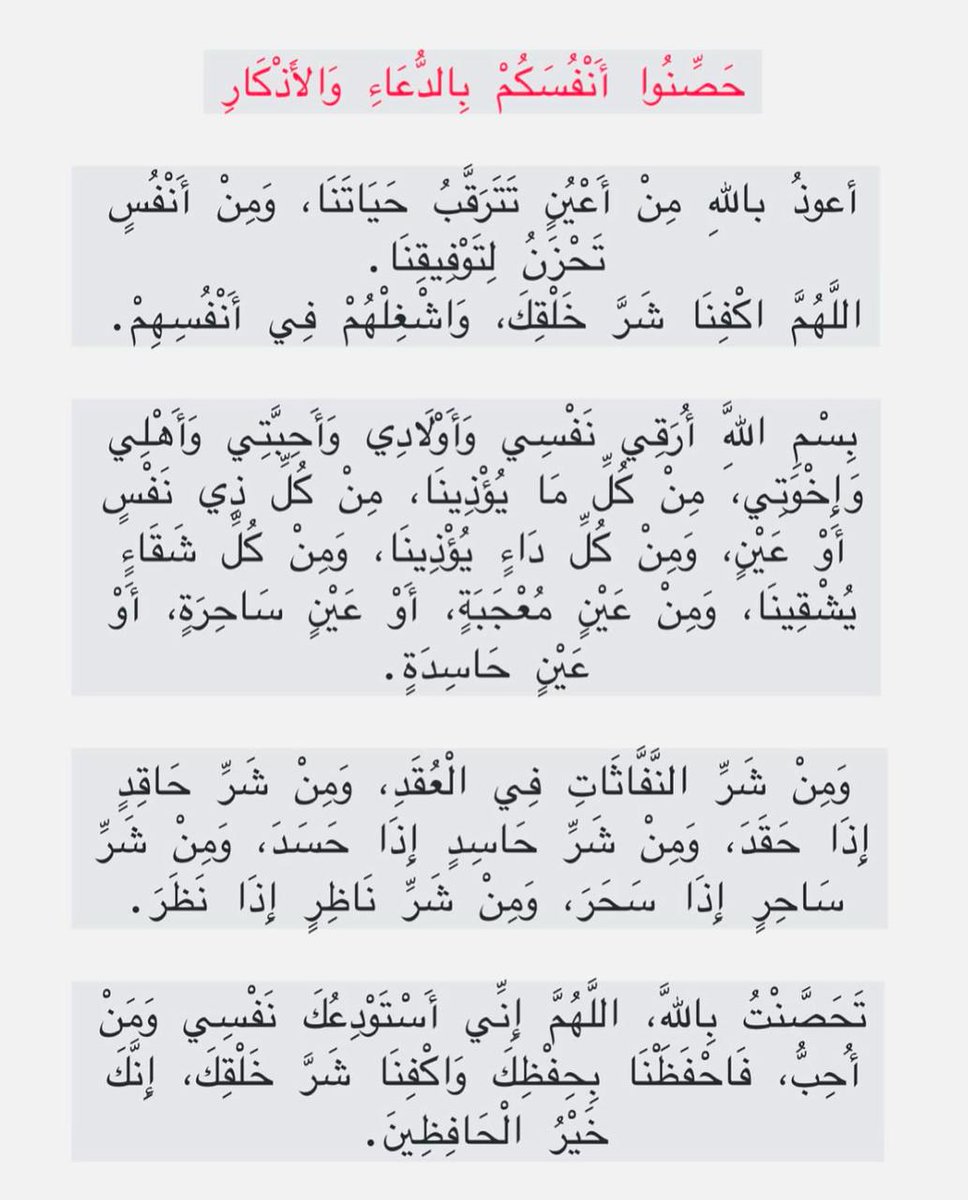 حَصِّنُوا أَنْفُسَكُمْ بِالدُّعَاءِ وَالأَذْكَارِ
أعوذُ باللهِ مِنْ أَعْيُنٍ تَتَرَقَّبُ حَيَاتَنَا، وَمِنْ أَنْفُسٍ
تَحْزَنُ لِتَوْفِيقِنَا.
اللَّهُمَّ اكْفِنَا شَرَّ خَلْقِكَ، وَاشْغِلْهُمْ فِي أَنْفُسِهِمْ.
بِسْمِ اللهَِّ أُرَقِي نَفْسِي وَأَوْلَادِي وَأَحِبَّتِي وَأَهْلِي
وَإِخْوَتِي، مِنْ كُلِّ مَا يُؤْذِينَا، مِنْ كُلِّ ذِي نَفْسٍ
أَوْ عَيْنٍ، وَمِنْ كُلِّ دَاءٍ يُؤْذِينَا، وَمِنْ كُلِّ شَقَاءٍ
يُشْقِينَا، وَمِنْ عَيْنٍ مُعْجَبَةٍ، أَوْ عَيْنٍ سَاحِرَةٍ، أَوْ
عَيْنٍ حَاسِدَةٍ.
وَمِنْ شَرِّ النَّفَّاثَاتِ فِي الْعُقَدِ، وَمِنْ شَرِّ حَاقِدٍ
إِذَا حَقَدَ، وَمِنْ شَرِّ حَاسِدٍ إِذَا حَسَدَ، وَمِنْ شَرِّ
سَاحِرٍ إِذَا سَحَرَ، وَمِنْ شَرِّ نَاظِرٍ إِذَا نَظَرَ.
تَحَصَّنْتُ بِاللهَِّ، اللَّهُمَّ إِنِّي أَسْتَوْدِعُكَ نَفْسِي وَمَنْ
أُحِبُّ، فَاحْفَظْنَا بِحِفْظِكَ وَاكْفِنَا شَرَّ خَلْقِكَ، إِنَّكَ
خَيْرُ الْحَافِظِينَ.